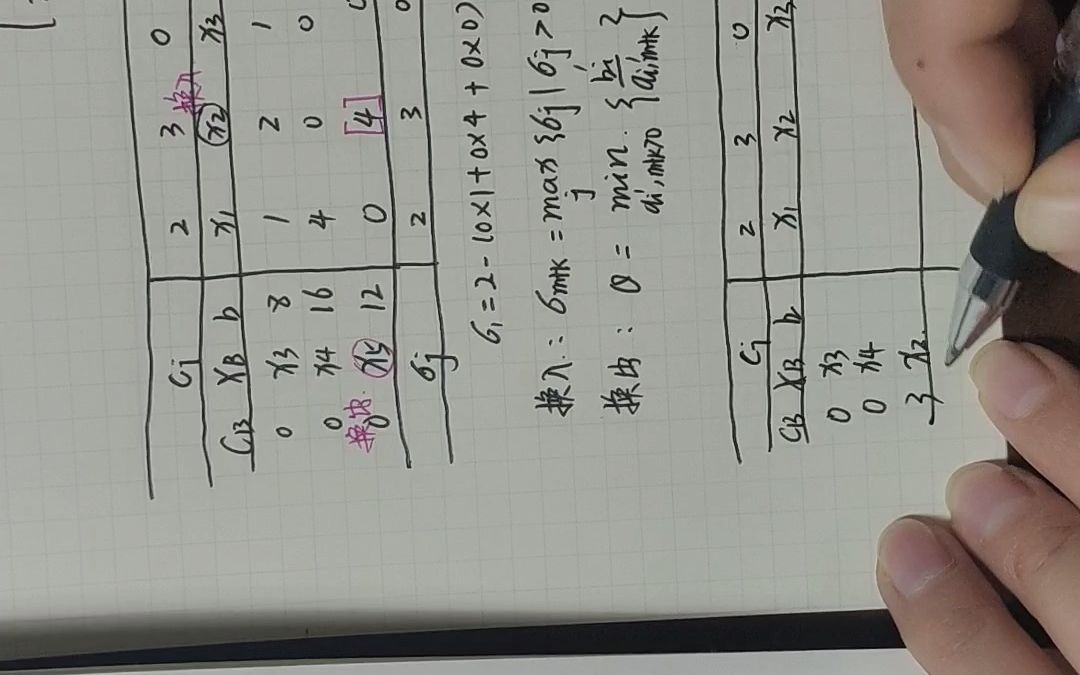 Cj 2 3 换入 0
CB XB b x1 x2 x3
0 x3 8 1 2 1
0 x4 16 4 0 0
换出: 0 x5 12 0 [4]
σj 2 3
σ1 = 2 - (0×1 + 0×4 + 0×0)
换入: σm+k = max j {σj | σj > 0
换出: θ = min ai,m+k>0 { bi / ai,m+k }
Cj 2 3 0
CB XB b x1 x2 x3
0 x3
0 x4
3 x2